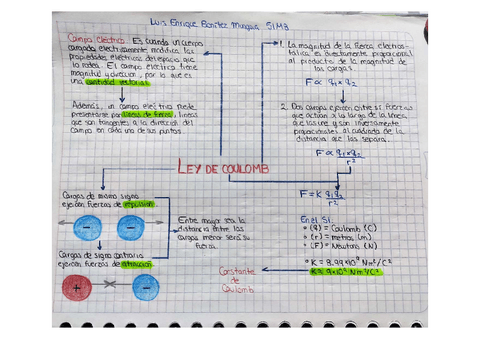 Luis Enrique Benítez Munguía 51M3
Campo Eléctrico. Es cuando un cuerpo
cargado eléctricamente, modifica las
propiedades eléctricas del espacio que
lo rodea. El campo eléctrico tiene
magnitud y dirección, por lo que es
una cantidad vectorial.
Además, un campo eléctrico puede
presentarse por líneas de fuerza, líneas
que son tangentes a la dirección del
campo en cada uno de los puntos.
1. La magnitud de la fuerza electros-
tática es directamente proporcional
al producto de la magnitud de
las cargas.
F ∝ q1 × q2
2. Dos cargas ejercen entre sí fuerzas
que actúan a lo largo de la línea
que las une y son inversamente
proporcionales al cuadrado de la
distancia que las separa.
F ∝ q1 × q2
r²
LEY DE COULOMB
F = K q1 q2
r²
Cargas de mismo signo
ejercen fuerzas de repulsión.
- -
Entre mayor sea la
distancia entre las
cargas menor será su
fuerza.
Cargas de signo contrario
ejercen fuerzas de atracción.
+ -
En el SI:
° (q) = Coulomb (C)
° (r) = metros (m)
° (F) = Newtons (N)
° K = 8.99x10⁹ Nm²/C²
K ≈ 9x10⁹ Nm²/C²
Constante
de
Coulomb